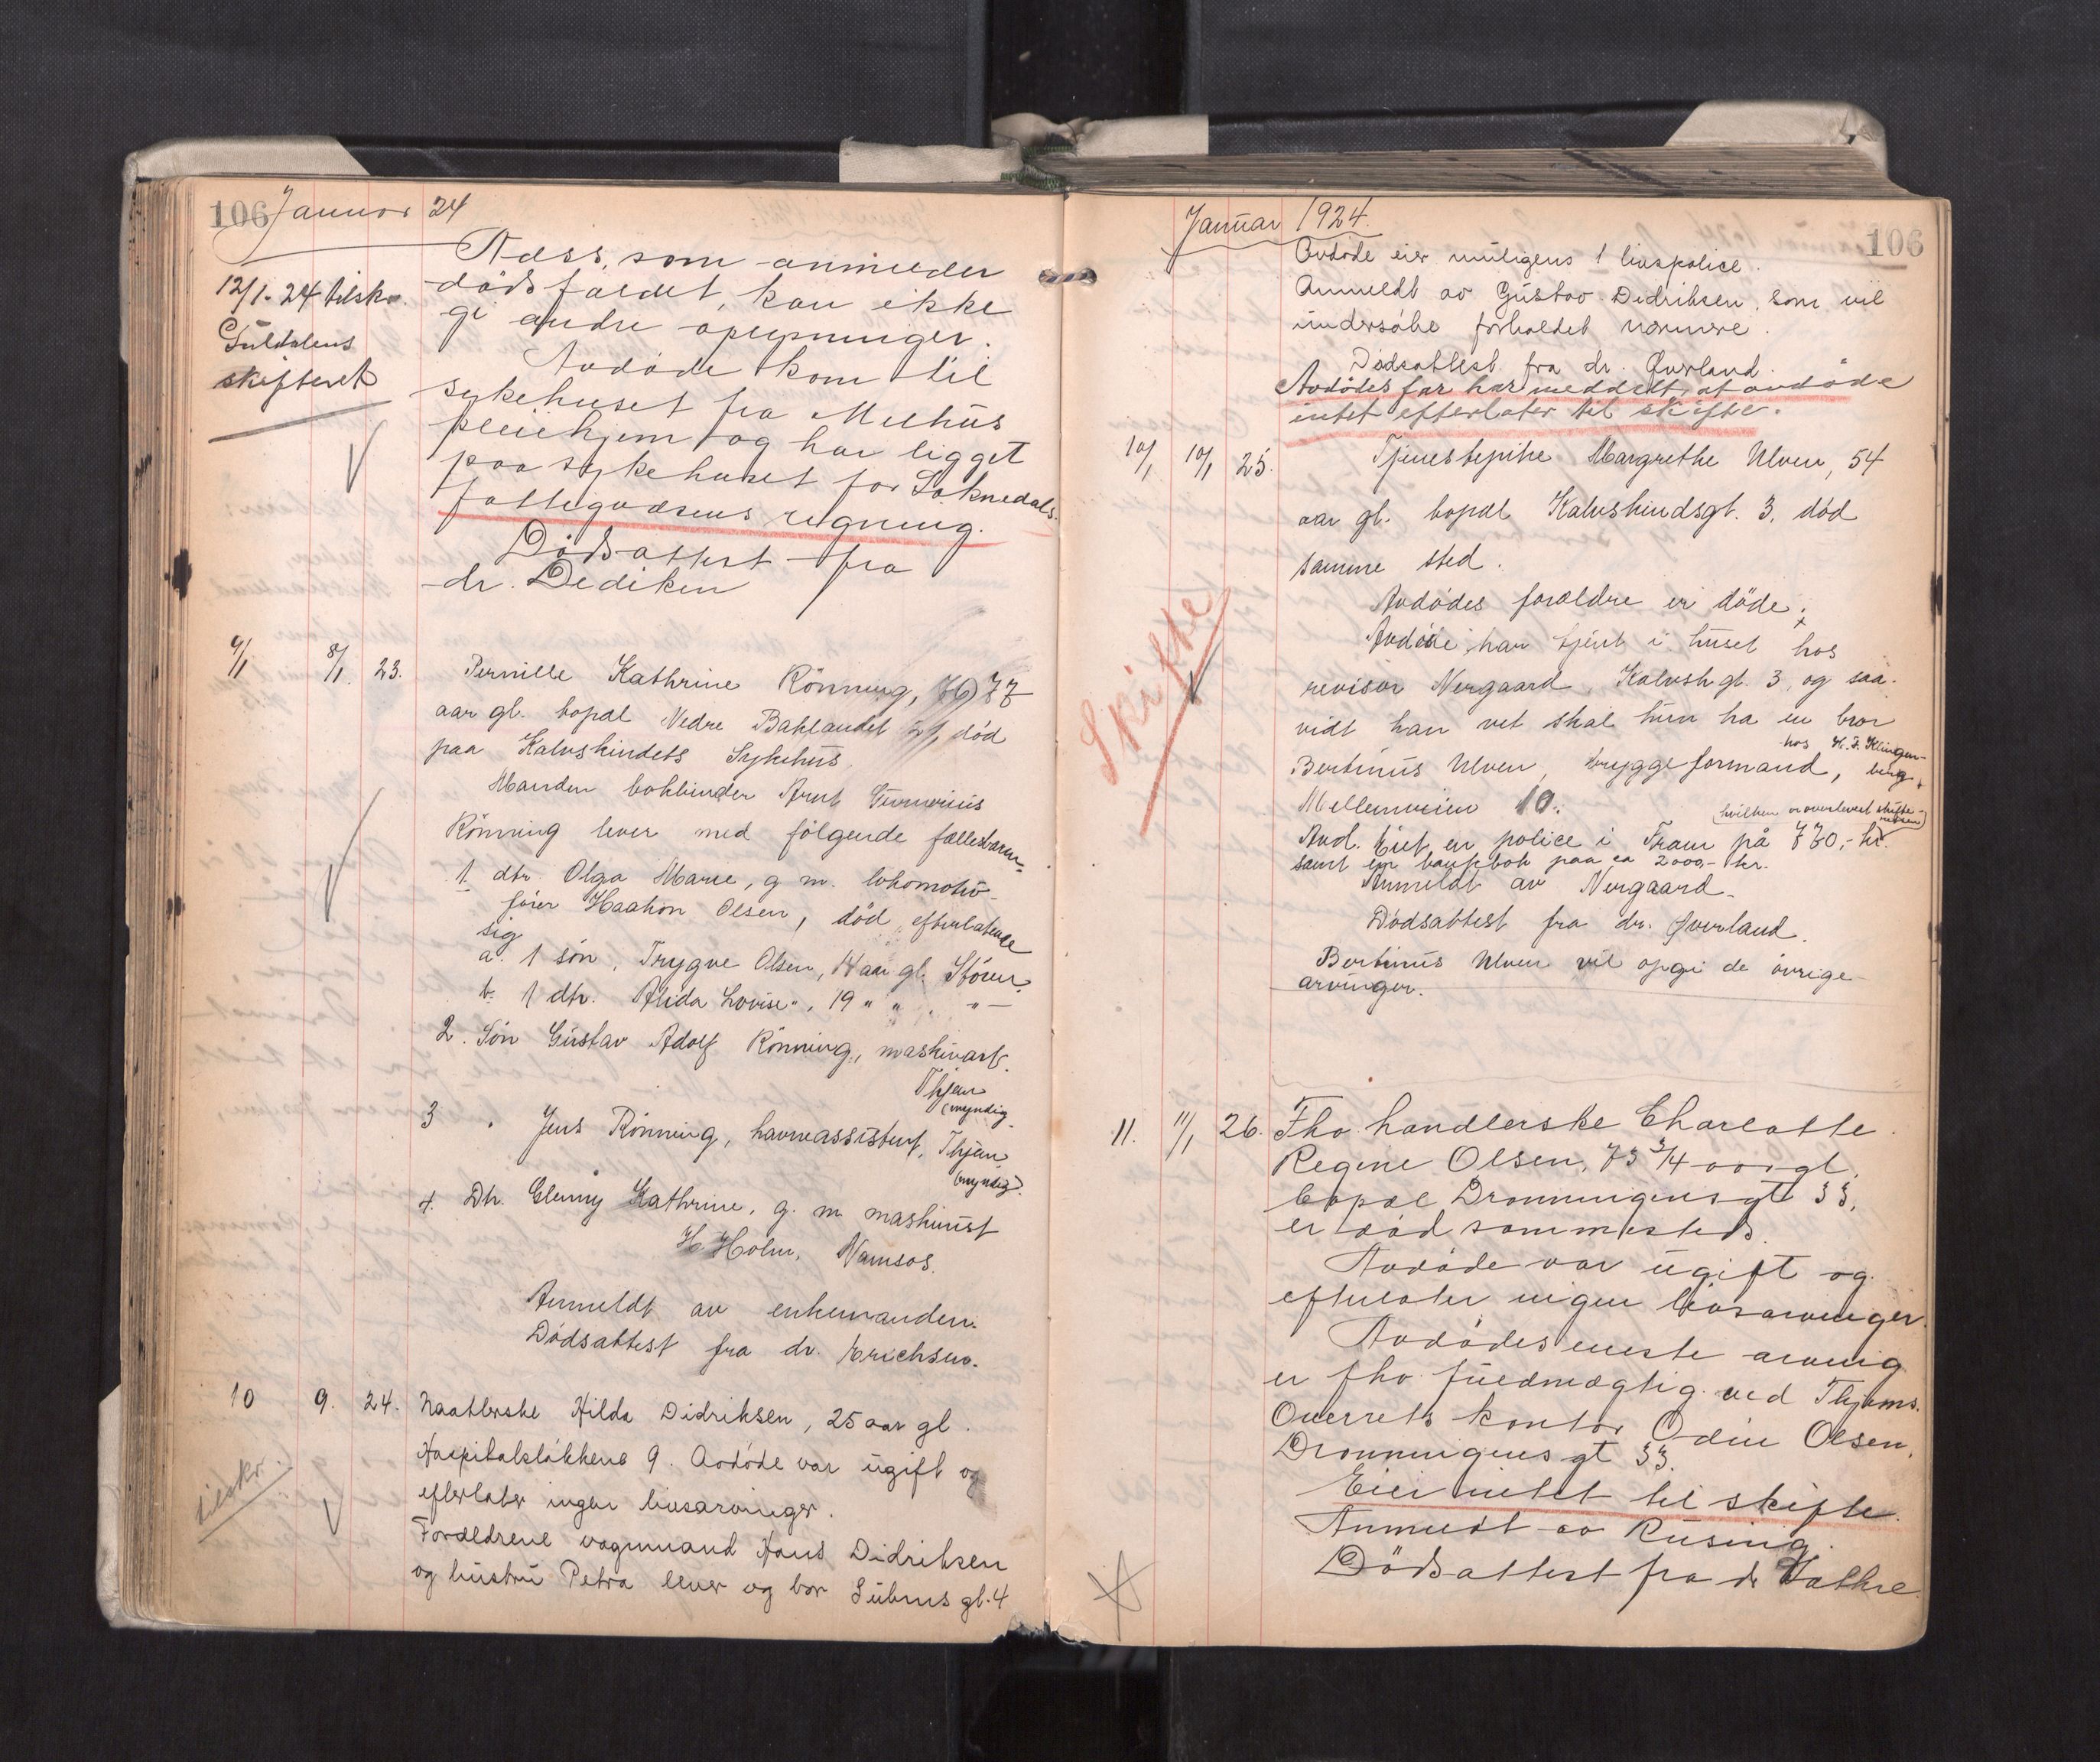 106 Januar 24
Næss, som anmelder
dødsfaldet, kan ikke
gi andre oplysninger.
12/1-24 tilskr.
Guldalens
skifteret
Avdøde kom til
sykehuset fra Melhus
pleiehjem og har ligget
paa sykehuset for Soknedals
fattigvæsens regning.
Dødsattest fra
dr. Dedichen
9/1 8/1 23. Pernille Kathrine Rönning, 77
aar gl. bopæl Nedre Baklandet 21, död
paa Kalvskindets Sykehus.
Manden bokbinder Arnt
Rönning lever med fölgende fællesbarn
1. dtr. Olga Marie, g m. lokomotiv-
förer Haakon Olsen, död, efterlatende
sig
a. 1 sön, Trygve Olsen, 14 aar gl. Stören.
b. 1 dtr. Alida Lovise ", 19 " " "
2. Sön Gustav Adolf Rönning, maskinarb.
Thjem
(myndig
3 " Jens Rönning, havneassistent, Thjem
(myndig).
4. Dtr. Clenny Kathrine, g. m. maskinist
H. Holm, Namsos.
Anmeldt av enkemanden.
Dödsattest fra dr. Erichsen.
10 9. 24. Naatlerske Hilda Didriksen, 25 aar gl.
tilskr.
Hospitalslökkene 9. Avdöde var ugift og
efterlater ingen livsarvinger.
Forældrene vognmand Hans Didriksen
og hustru Petra lever og bor Lübnus gt. 4
Januar 1924.
106
Avdöde eier muligens 1 livspolice.
Anmeldt av Gustav Didriksen, som vil
undersöke forholdet nærmere.
Dödsattest fra dr. Øverland.
Avdödes far har meddelt, at avdöde
intet efterlater til skifte.
10/1 10/1 25. Tjenestepike Margrethe Ulven, 54
aar gl. bopæl Kalvskindsgt. 3, död
samme sted.
Skifte
Avdödes forældre er döde.
Avdöde har tjent i huset hos
revisor Nergaard, Kalvsk gt. 3, og saa-
vidt han vet skal hun ha en bror
Bertinus Ulven, bryggeformand, hos H. F. Klingen-
berg,
Mellemveien 10.
(hvilken er overlevert skifte-
retten)
Avd. eiet en police i Fram på 770,- kr.
samt en bankbok paa ca 2000,- kr.
Anmeldt av Nergaard.
Dödsattest fra dr. Øverland.
Bertinus Ulven vil opgi de övrige
arvinger.
11. 11/1 26. Fhv. handlerske Charlotte
Regine Olsen, 73 3/4 aar gl.
bopæl Dronningensgt 33,
er död sammesteds.
Avdöde var ugift og
efterlater ingen livsarvinger.
Avdödes eneste arving
er fhv. fuldmægtig ved Thjems.
Overrets kontor Odin Olsen,
Dronningens gt 33.
Eier intet til skifte.
Anmeldt av Rusing.
Dödsattest fra dr